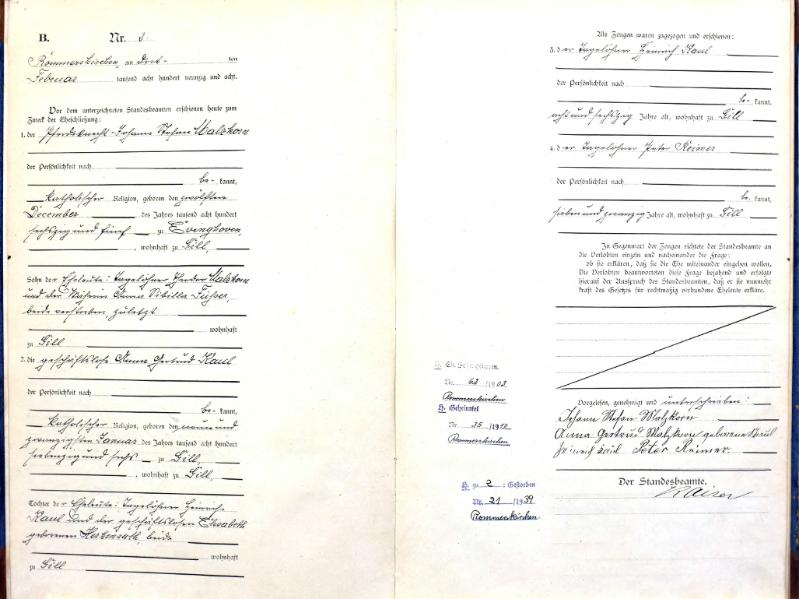 B.
Nr. 8.
Rommerskirchen, am drei- ten
Februar tausend acht hundert neunzig und acht.
Vor dem unterzeichneten Standesbeamten erschienen heute zum
Zweck der Eheschließung:
1. der Pferdeknecht Johann Stefan Malzkorn
der Persönlichkeit nach
be- kannt,
katholischer Religion, geboren den zwölften
December des Jahres tausend acht hundert
sechszig und fünf zu Evinghoven,
, wohnhaft zu Gill,
Sohn der Eheleute: Tagelöhner Theodor Malzkorn
und der Anna Sibilla
beide verstorben, zuletzt
wohnhaft
zu Gill
2. die geschäftslose Anna Gertrud Kaul
der Persönlichkeit nach
be- kannt,
katholischer Religion, geboren den neun und
zwanzigsten Januar des Jahres tausend acht hundert
siebenzig und sechs zu Gill,
, wohnhaft zu Gill,
Tochter der Eheleute: Tagelöhner Heinrich
Kaul und der geschäftslosen Elisabeth
geborenen beide
wohnhaft
zu Gill
Als Zeugen waren zugezogen und erschienen:
3. der Tagelöhner Heinrich Kaul
der Persönlichkeit nach
be- kannt,
acht und sechszig Jahre alt, wohnhaft zu Gill
4. der Tagelöhner Peter Reimer
der Persönlichkeit nach
be- kannt,
sieben und zwanzig Jahre alt, wohnhaft zu Gill
In Gegenwart der Zeugen richtete der Standesbeamte an
die Verlobten einzeln und nacheinander die Frage:
ob sie erklären, daß sie die Ehe miteinander eingehen wollen.
Die Verlobten beantworteten diese Frage bejahend und erfolgte
hierauf der Ausspruch des Standesbeamten, daß er sie nunmehr
kraft des Gesetzes für rechtmäßig verbundene Eheleute erkläre.
Vorgelesen, genehmigt und unterschrieben:
Johann Stefan Malzkorn
Anna Gertrud Malzkorn geborene Kaul
Heinrich Kaul Peter Reimer.
Der Standesbeamte.
Kaiser
Nr. /1903
Rommerskirchen
Geheiratet
Nr. 35 /19
Rommerskirchen
zu 2: Gestorben
Nr. 21 /1939
Rommerskirchen